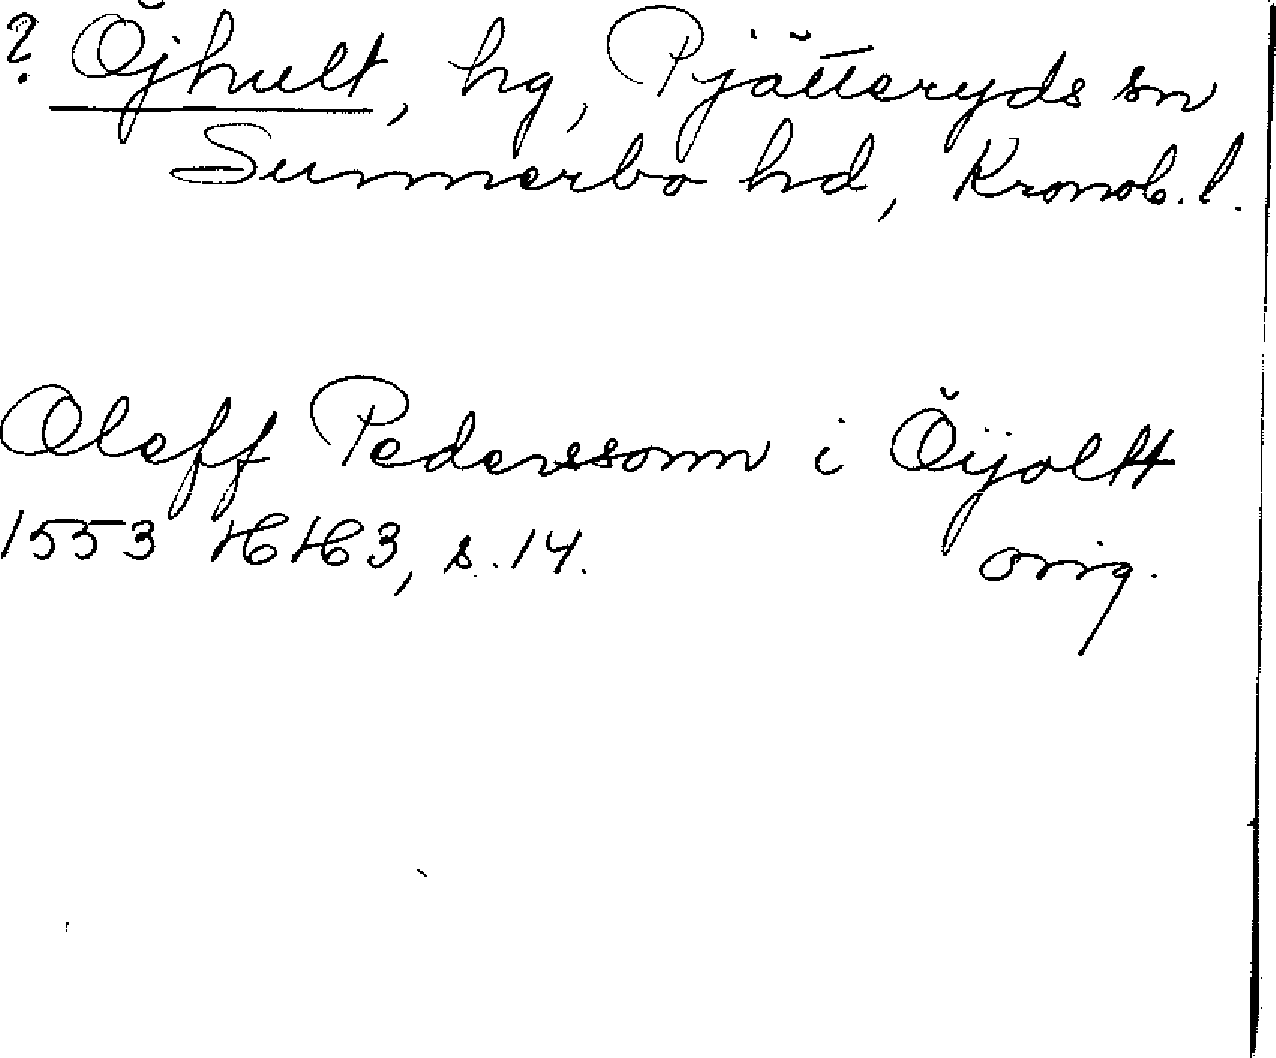 ? Öjhult, hg, Pjätteryds sn
Sunnerbo hd, Kronob. l.
Oleff Pederssonn i Öijoltt
1553 HH3, s. 14. orig.